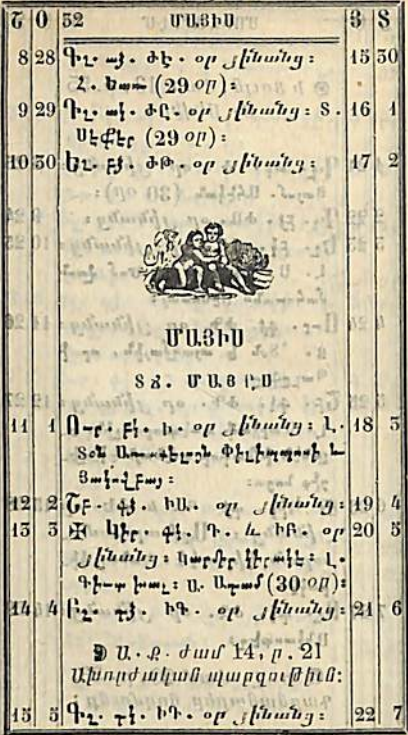 Շ Օ 52 ՄԱՅԻՍ Յ Տ
8 28 Գլ. այ. ԺԷ. օր յինանց: 15 30
Հ. Եաւ (29 օր):
9 29 Գլ. ակ. ԺԸ. օր յինանց: Տ. 16 1
Սէֆէր (29 օր):
10 30 Եկ. բէ. ԺԹ. օր յինանց: 17 2
ՄԱՅԻՍ
ՏՃ. ՄԱՅԻՍ
11 1 Ուր. բկ. Ի. օր յինանց: Լ. 18 3
Տօն Առաքելոյն Փիլիպպոսի և
Յակովբայ:
12 2 Շբ. գձ. ԻԱ. օր յինանց: 19 4
13 3 ✠ Կիր. գկ. Դ. և ԻԲ. օր 20 5
յինանց: Կարմիր կիրակէ: Լ.
Գիւտ խաչ: Ա. Ադամ (30 օր):
14 4 Բշ. դձ. ԻԳ. օր յինանց: 21 6
Ա. Ք. ժամ 14, ր. 21
Ախորժական պարզութիւն:
15 5 Գշ. դկ. ԻԴ. օր յինանց: 22 7